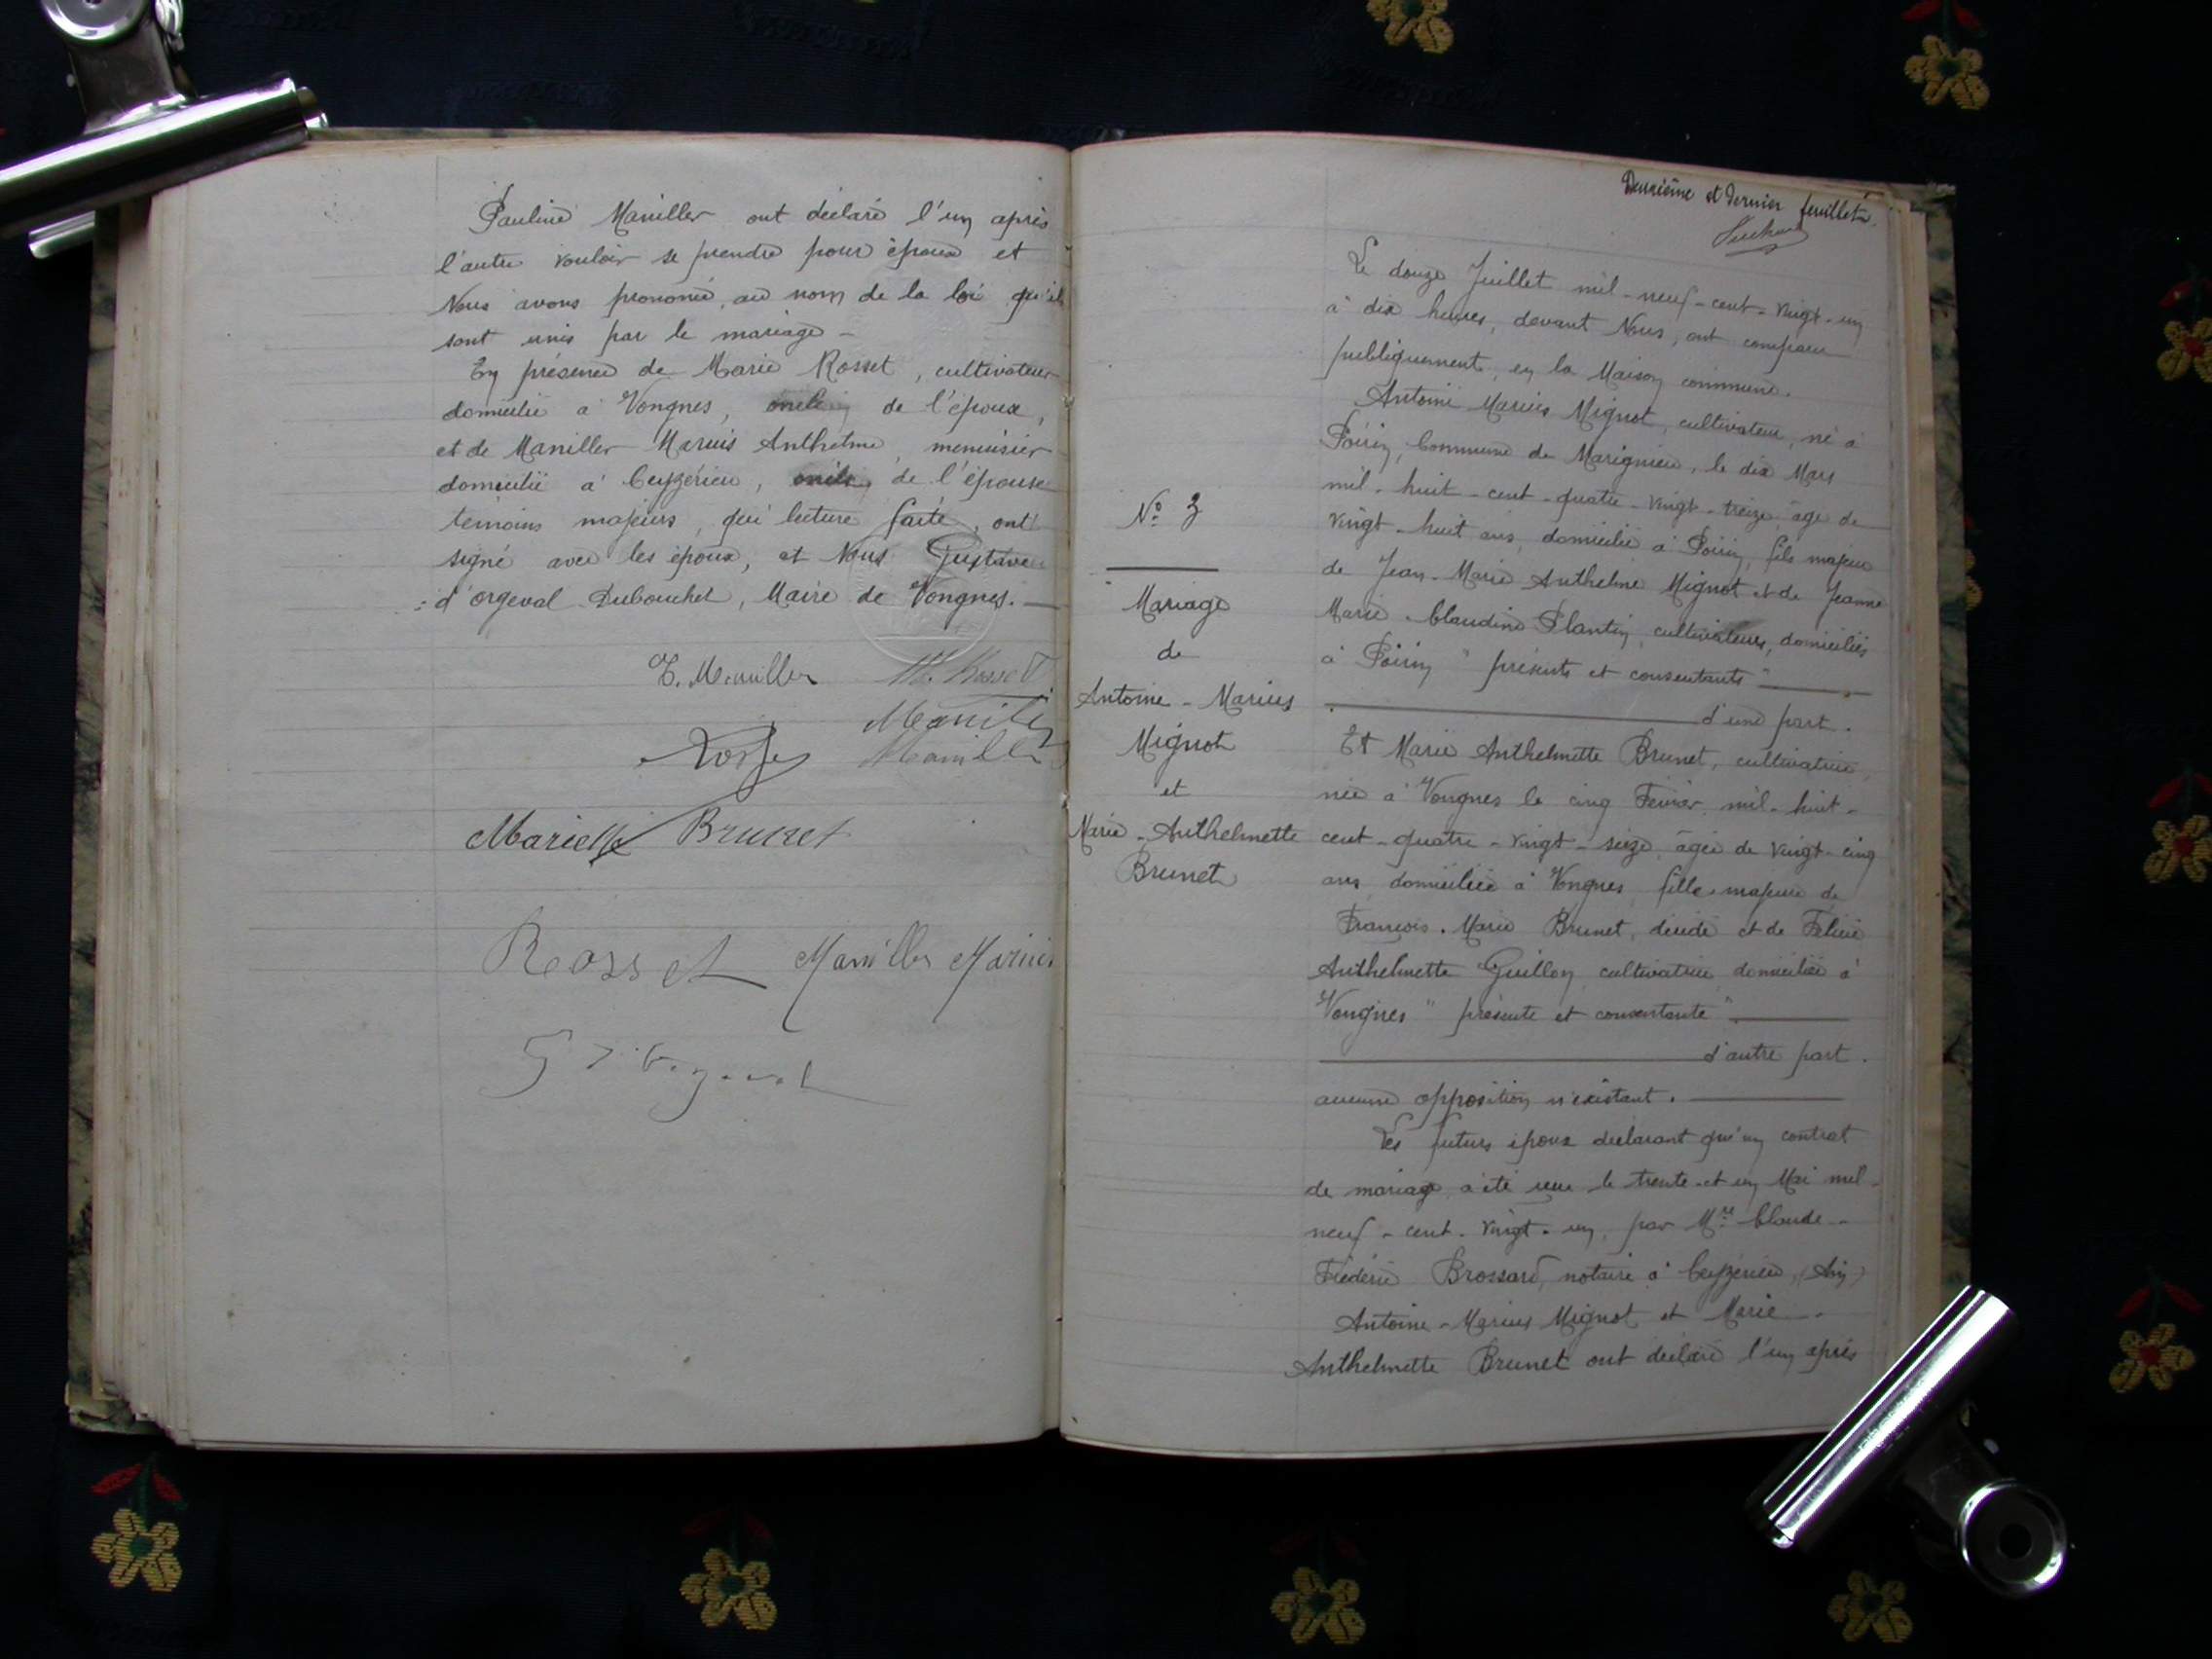 Pauline Maniller ont déclaré l'un après
l'autre vouloir se prendre pour époux et
Nous avons prononcé, au nom de la loi qu'ils
sont unis par le mariage -
En présence de Marie Rosset, cultivateur
domicilié à Vongnes, oncle de l'époux,
et de Maniller Marius Anthelme, menuisier
domicilié à Ceyzérieu, oncle de l'épouse
témoins majeurs, qui lecture faite, ont
signé avec les époux, et Nous Gustave
d'orgeval Dubouchet, Maire de Vongnes.
P. Maniller M. Rosset
Maniller
Rosset Maniller
Marie Brunet
Rosset Maniller Marius
G d'Orgeval
Deuxième et dernier feuillet.
Le douze Juillet mil-neuf-cent-vingt-un
à dix heures, devant Nous, ont comparu
publiquement, en la Maison commune.
Antoine Marius Mignot, cultivateur, né à
Poirin, Commune de Marignieu, le dix Mars
mil-huit-cent-quatre-vingt-treize, âgé de
vingt-huit ans, domicilié à Poirin, fils majeur
de Jean-Marie Anthelme Mignot et de Jeanne
Marie-Claudine Plantin, cultivateurs, domiciliés
à Poirin "présents et consentants"
d'une part.
Et Marie Anthelmette Brunet, cultivatrice,
née à Vongnes le cinq Février mil-huit-
cent-quatre-vingt-seize, âgée de vingt-cinq
ans, domiciliée à Vongnes, fille majeure de
François-Marie Brunet, décédé et de Félicie
Anthelmette Guillon, cultivatrice, domiciliée à
Vongnes "présente et consentante"
d'autre part.
aucune opposition n'existant.
Les futurs époux déclarant qu'un contrat
de mariage a été reçu le trente-et-un Mai mil-
neuf-cent-vingt-un, par Mre Claude-
Frédéric Brossard, notaire à Ceyzérieu, (Ain)
Antoine-Marius Mignot et Marie-
Anthelmette Brunet ont déclaré l'un après
N° 3
Mariage
de
Antoine-Marius
Mignot
et
Marie-Anthelmette
Brunet